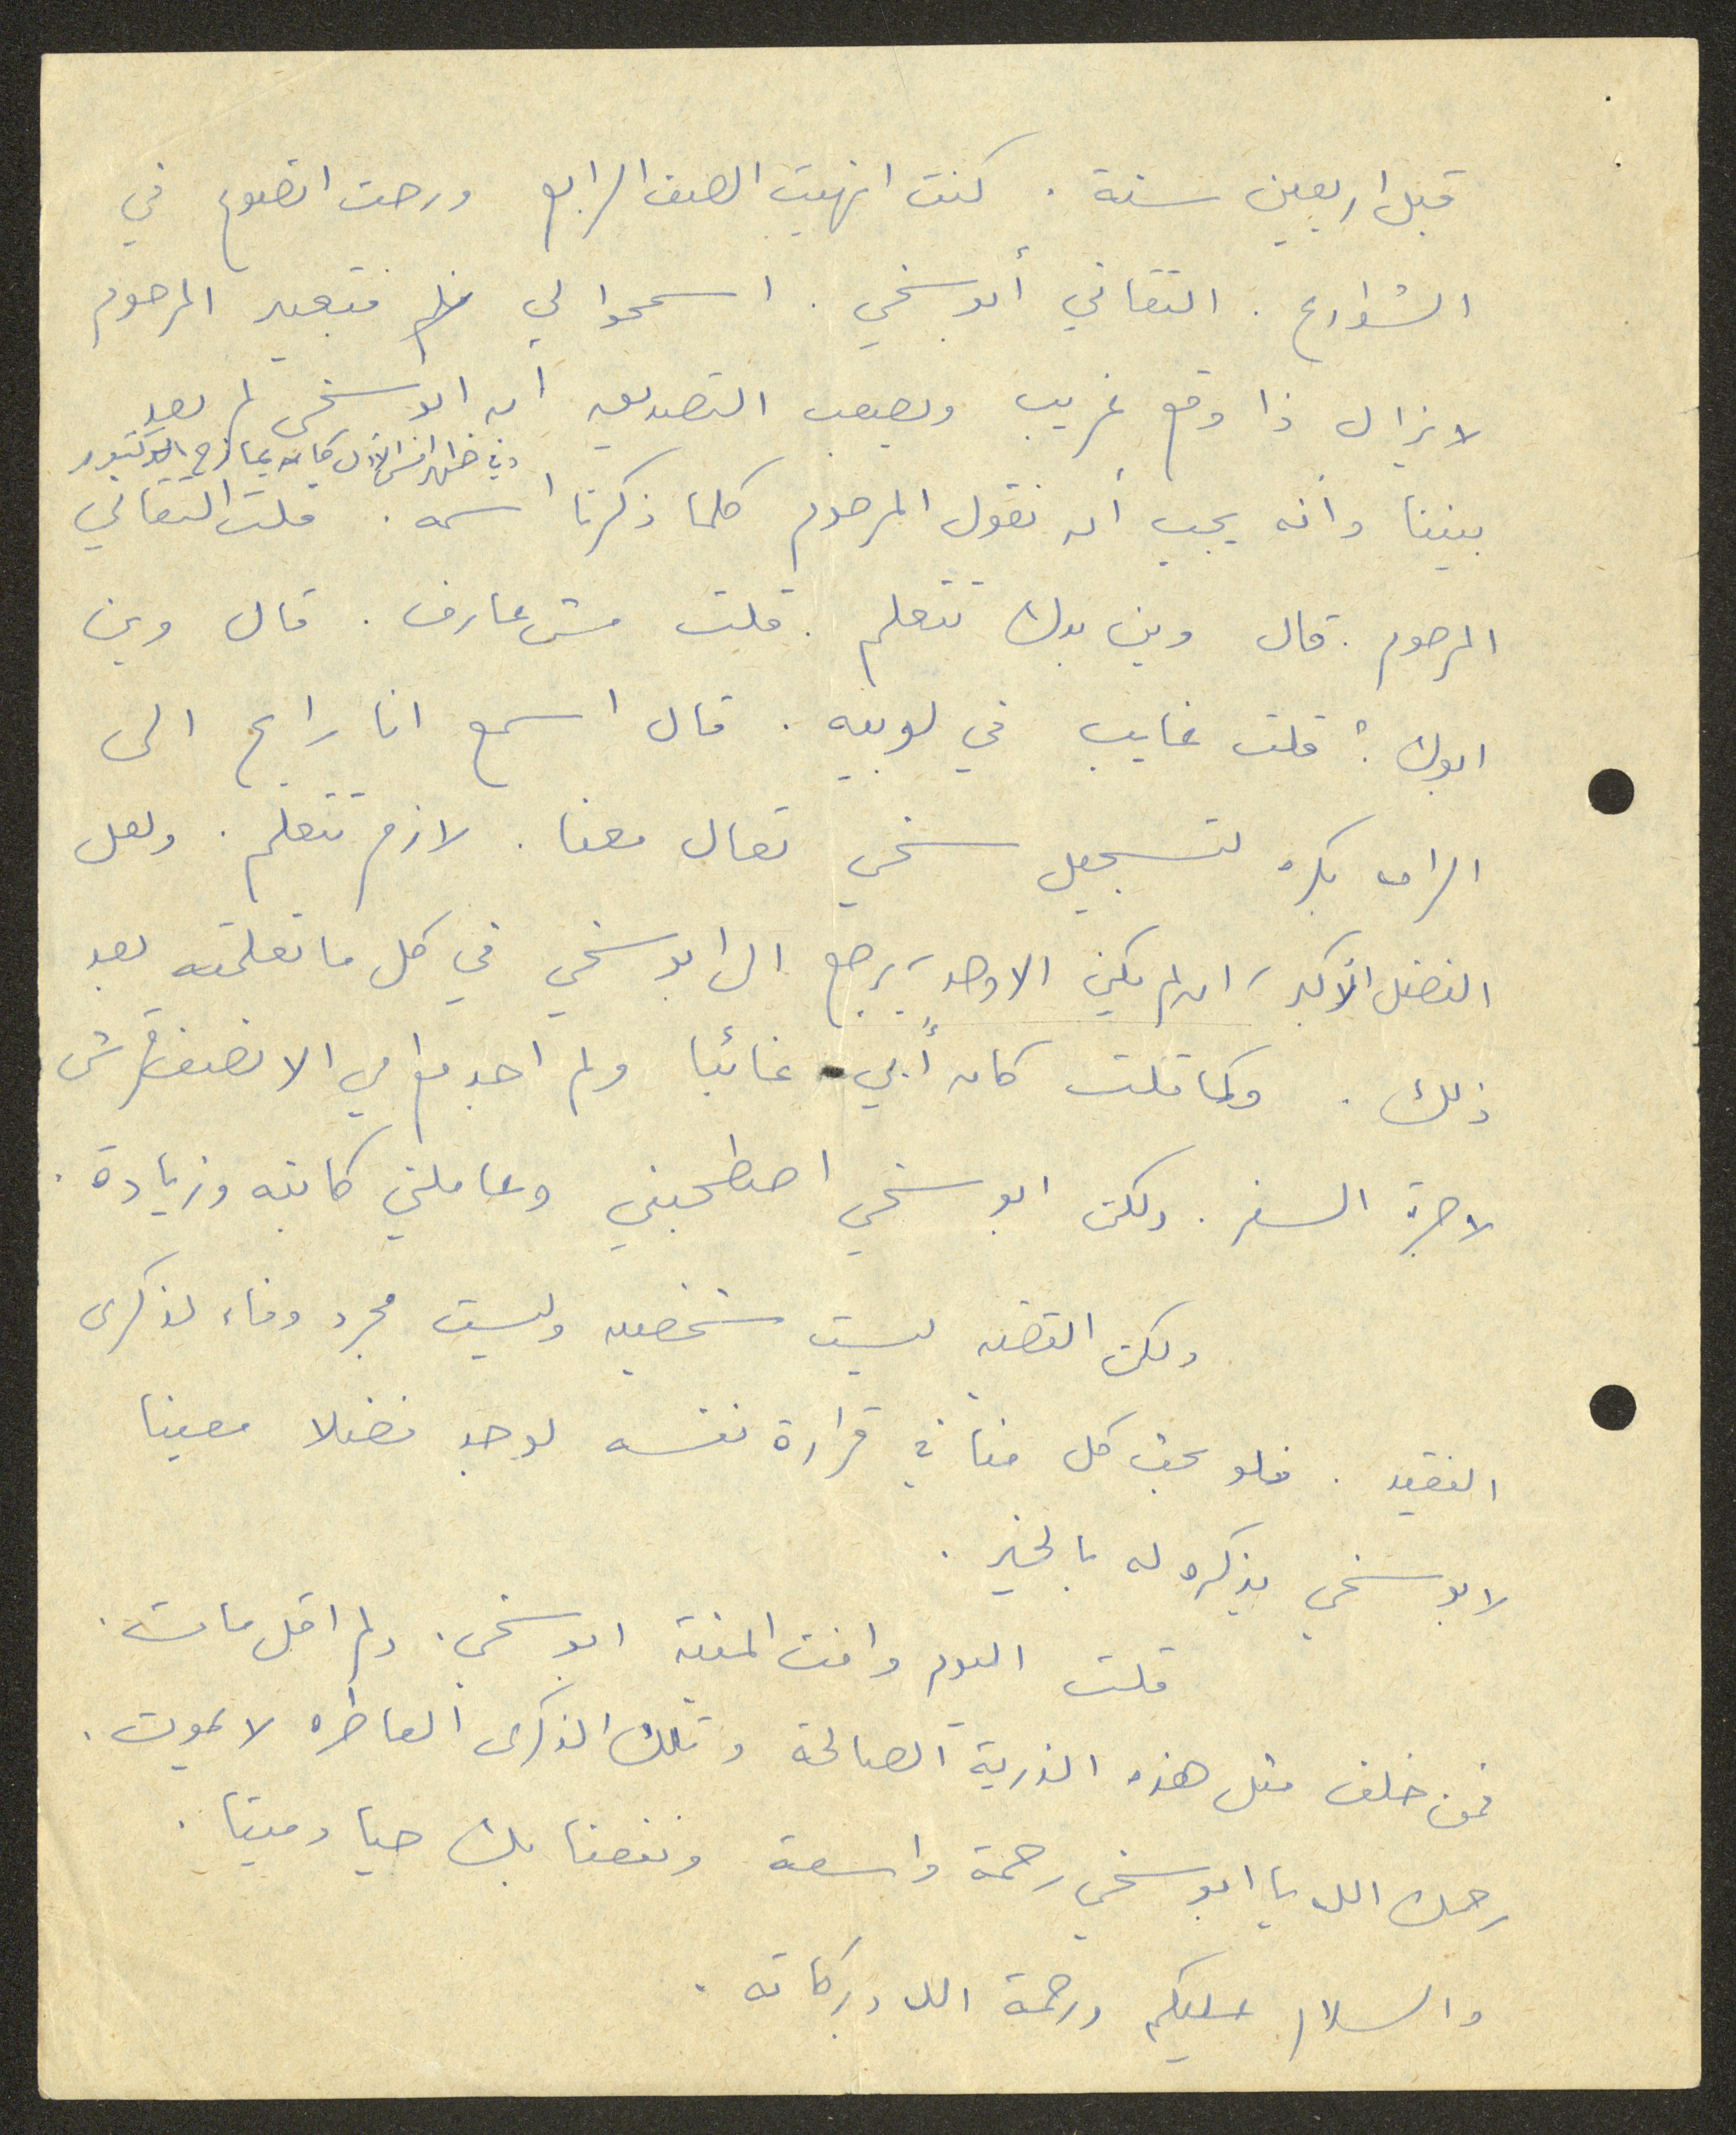 قبل اربعين سنة . كنت انهيت الصف الرابع ورحت اتصوع في
الشوارع . التقاني أبو سخي . اسمحوا لي فتعبير المرحوم
لا يزال ذا وقع غريب ويصعب التصديق ان ابو سخي لم يعد
وفي ظهر امس الاول كان يمازح الدكتور
بيننا وأنه يجب أن نقول المرحوم كلما ذكرنا اسمه . قلت التقاني
المرحوم . قال وين بدك تتعلم . قلت مش عارف . قال وين
ابوك ؟ قلت غايب في لوبيه . قال اسمع انا رايح الى
الرامه بكره لتسجيل سخي تعال معنا . لازم تتعلم . ولعل
الفضل الأكبر ، ان لم يكن الاوحد ، يرجع الى ابو سخي في كل ما تعلمته بعد
ذلك . وكما قلت كان أبي غائبا ولم اجد مع امي الا نصف قرش
لاجرة السفر . ولكن ابو سخي اصطحبني وعاملني كابنه وزيادة .
ولكن القضيه ليست شخصيه وليست مجرد وفاء لذكرى
الفقيد . فلو بحث كل منا في قرارة نفسه لوجد فضلا معينا
لابو سخي يذكره له بالخير .
قلت اليوم وافت المنية ابو سخي . ولم اقل مات .
فمن خلف مثل هذه الذرية الصالحة وتلك الذكرى العاطره لا يموت .
رحمك الله يا ابو سخي رحمة واسعة ونفعنا بك حيا وميتا .
والسلام عليكم ورحمة الله وبركاته .